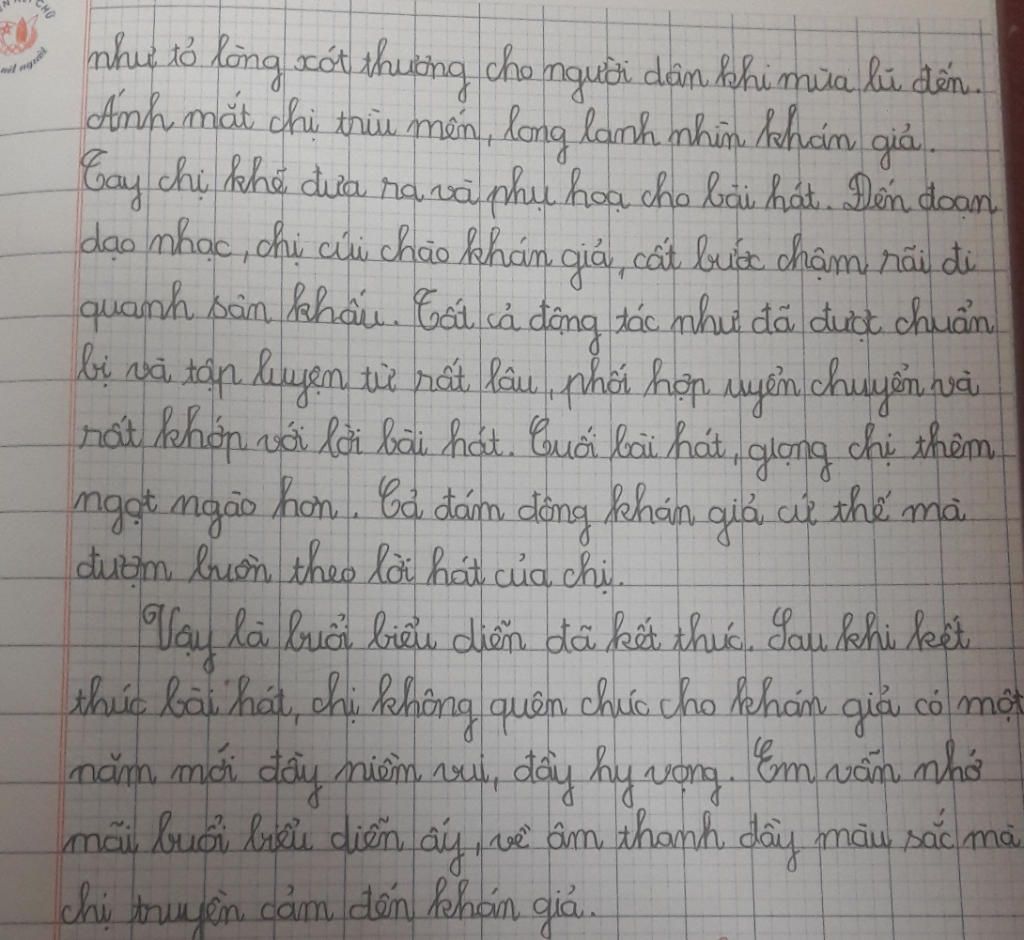 như tỏ lòng xót thương cho người dân khi mùa lũ đến.
Ánh mắt chị trìu mến, long lanh nhìn khán giả.
Tay chị khẽ đưa ra và phụ hoạ cho bài hát. Đến đoạn
dạo nhạc, chị cúi chào khán giả, cất bước chậm rãi đi
quanh sân khấu. Tất cả động tác như đã được chuẩn
bị và tập luyện từ rất lâu, phối hợp uyển chuyển và
rất khớp với lời bài hát. Cuối bài hát, giọng chị thêm
ngọt ngào hơn. Cả đám đông khán giả cứ thế mà
đượm buồn theo lời hát của chị.
Vậy là buổi biểu diễn đã kết thúc. Sau khi kết
thúc bài hát, chị không quên chúc cho khán giả có một
năm mới đầy niềm vui, đầy hy vọng. Em vẫn nhớ
mãi buổi biểu diễn ấy, về âm thanh đầy màu sắc mà
chị truyền cảm đến khán giả.